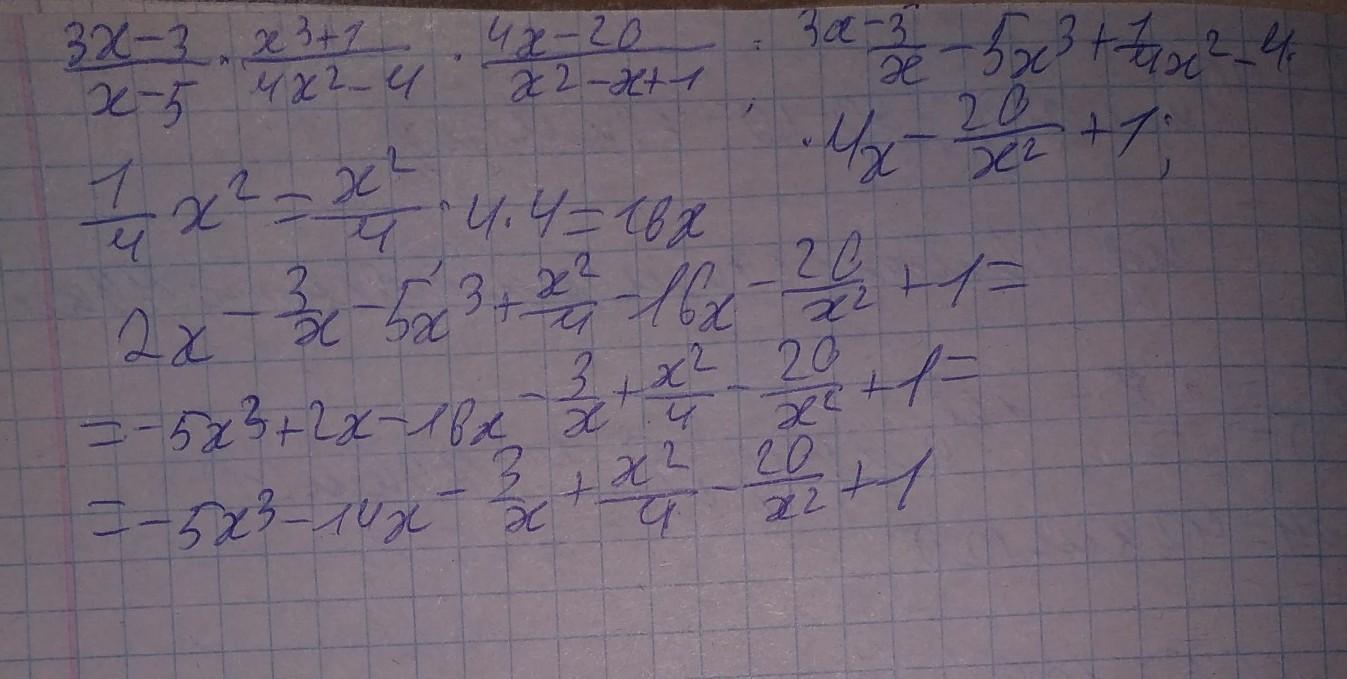 (3x-3)/(x-5) · (x³+1)/(4x²-4) · (4x-20)/(x²-x+1) ; 3x-3/x-5x³+1/4x²-4·
·4x-20/x²+1;
1/4 x² = x²/4 · 4·4=16x
2x-3/x-5x³+x²/4-16x-20/x²+1=
=-5x³+2x-16x-3/x+x²/4-20/x²+1=
=-5x³-14x-3/x+x²/4-20/x²+1